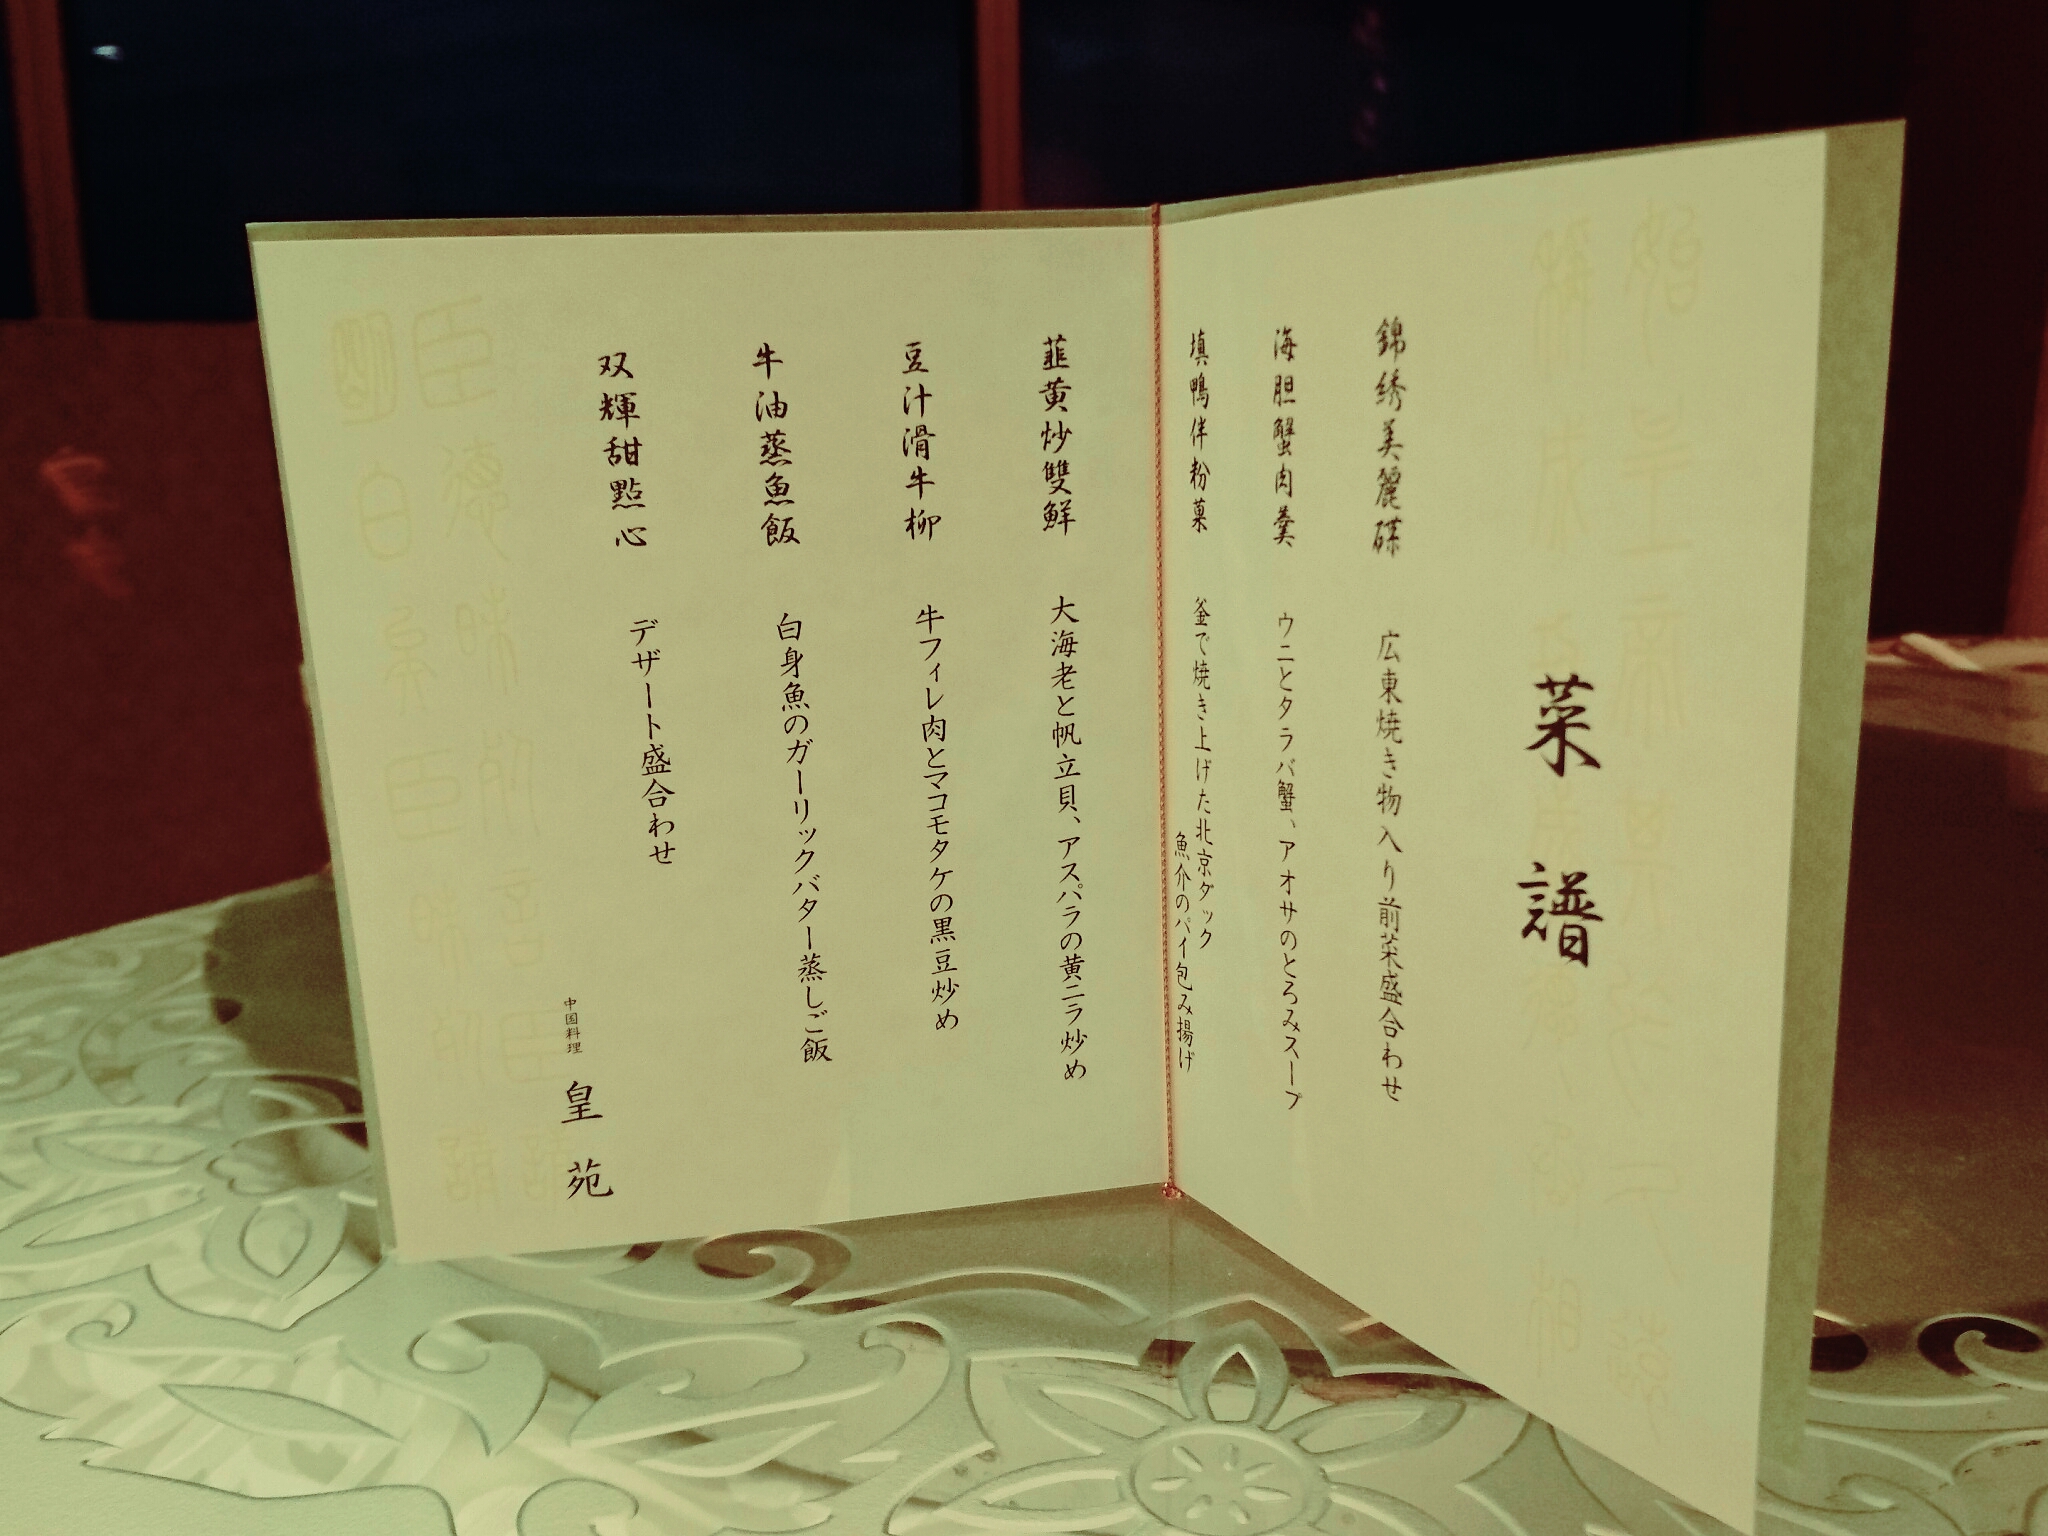 菜譜
錦綉美麗碟
広東焼き物入り前菜盛合わせ
海胆蟹肉羹
ウニとタラバ蟹、アオサのとろみスープ
填鴨伴粉菓
釜で焼き上げた北京ダック
魚介のパイ包み揚げ
韮黄炒雙鮮
大海老と帆立貝、アスパラの黄ニラ炒め
豆汁滑牛柳
牛フィレ肉とマコモタケの黒豆炒め
牛油蒸魚飯
白身魚のガーリックバター蒸しご飯
双輝甜點心
デザート盛合わせ
中国料理 皇苑